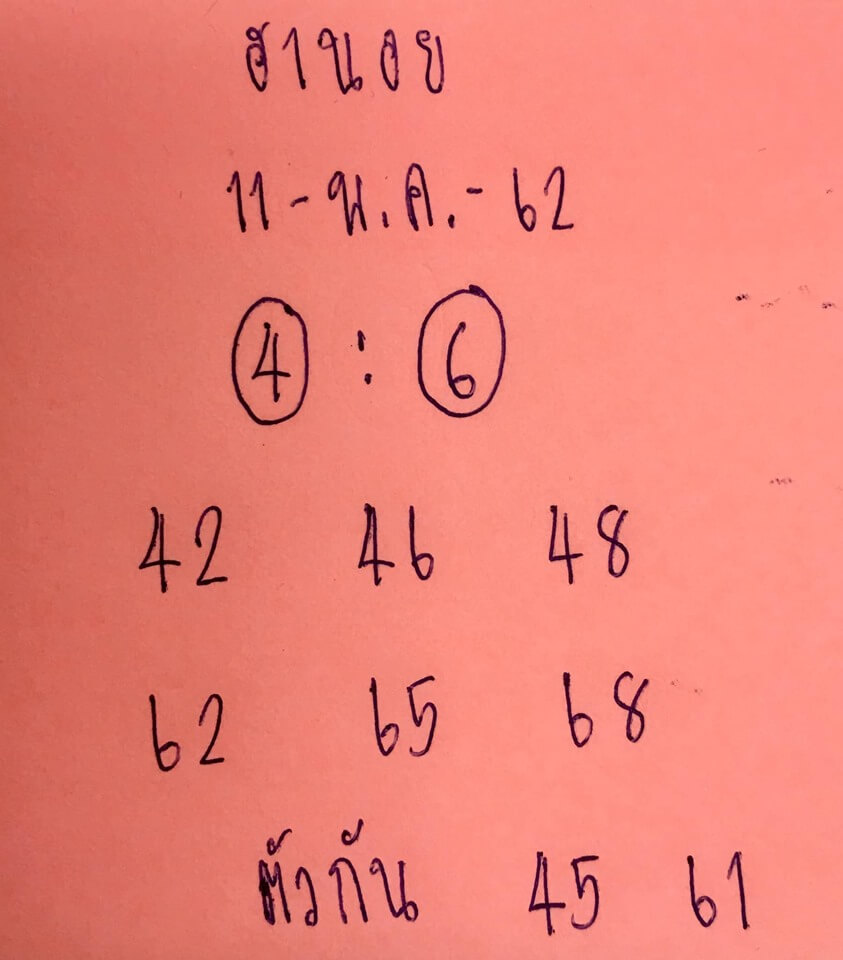 ฮานอย
11-พ.ค.-62
4 : 6
42 46 48
62 65 68
ตัวกัน 45 61